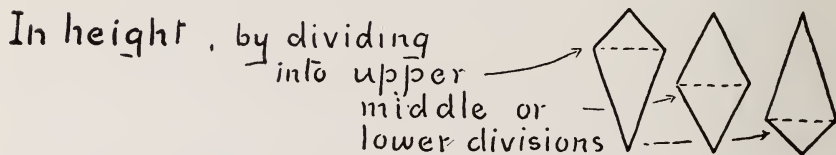 In height, by dividing
into upper
middle or
lower divisions